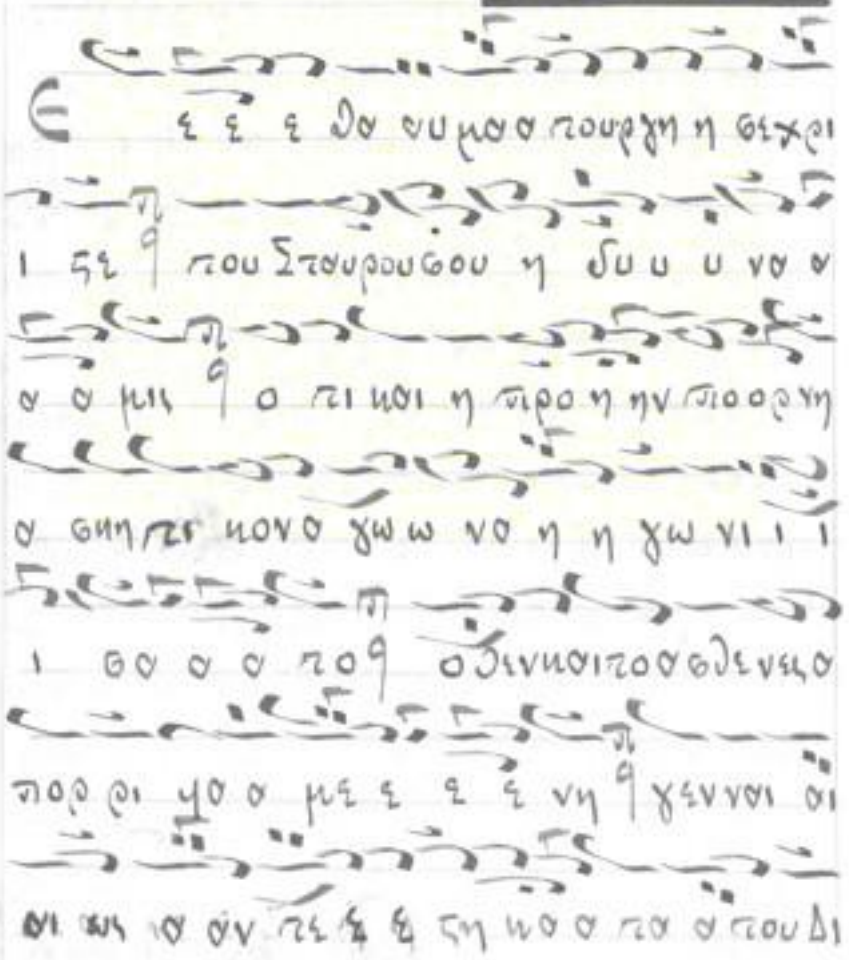 Ε ε ε ε θα αυ μα α τουργη η σε χρι
ι στε που Σταυρου σου η δυ υ υ να α
α α μις ο τι και η προ η ην πο ορ νη
α σκη τι κον α γω ω να η η γω νι ι ι
ι σα α α το ο θεν και το ασθενες α
πορ ρι ψα α με ε ε ε νη γενναι αι
αι ως α αν τε ε ε στη κα α τα α του Δι